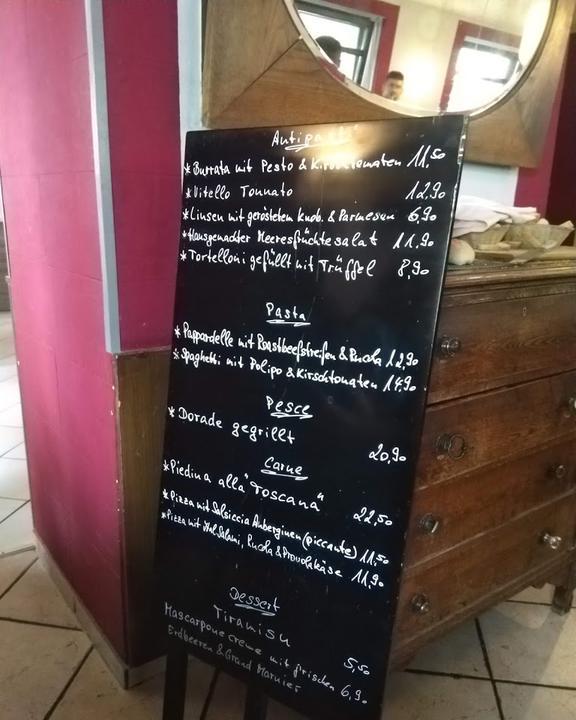 Antipasti
* Burrata mit Pesto & Kirschtomaten 11,50
* Vitello Tonnato 12,90
* Linsen mit geröstetem Knob. & Parmesan 6,90
* Hausgemachter Meeresfrüchtesalat 11,90
* Tortelloni gefüllt mit Trüffel 8,90
Pasta
* Pappardelle mit Roastbeefstreifen & Rucola 12,90
* Spaghetti mit Polipo & Kirschtomaten 14,90
Pesce
* Dorade gegrillt 20,90
Carne
* Piedina alla "Toscana" 22,50
* Pizza mit Salsiccia Auberginen (piccante) 11,50
* Pizza mit Ital. Salami, Rucola & Provolakäse 11,90
Dessert
Tiramisu 5,50
Mascarponecreme mit frischen
Erdbeeren & Grand Marnier 6,90